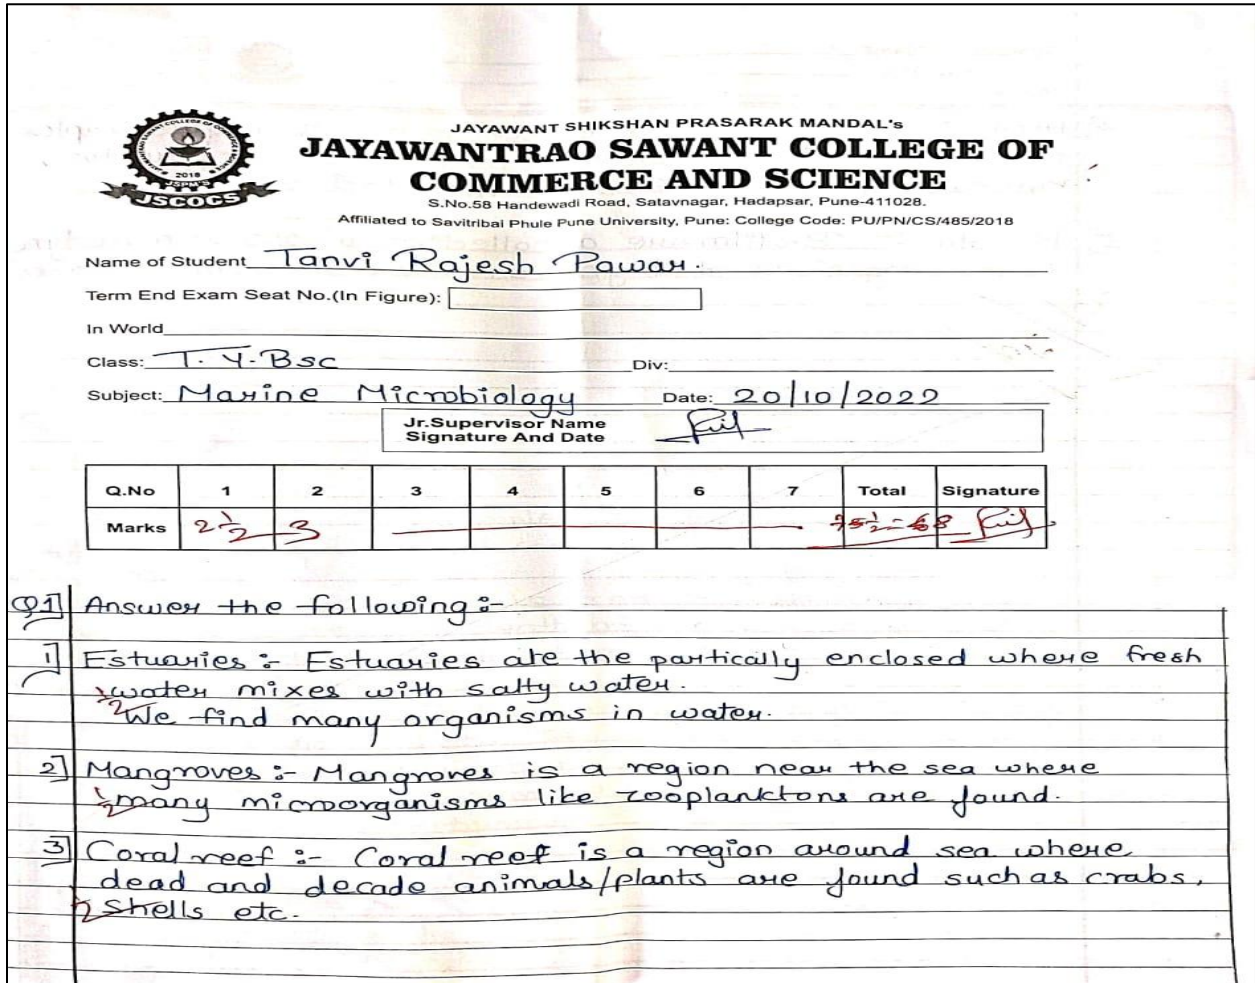 JAYAWANT SHIKSHAN PRASARAK MANDAL's
JAYAWANTRAO SAWANT COLLEGE OF
COMMERCE AND SCIENCE
S.No.58 Handewadi Road, Satavnagar, Hadapsar, Pune-411028.
Affiliated to Savitribai Phule Pune University, Pune: College Code: PU/PN/CS/485/2018
2018
JSPM's
JSCOCS
Name of Student Tanvi Rajesh Pawar.
Term End Exam Seat No.(In Figure):
In World
Class: T. Y. Bsc Div:
Subject: Marine Microbiology Date: 20/10/2022
Jr.Supervisor Name
Signature And Date
Q.No 1 2 3 4 5 6 7 Total Signature
Marks 2½ 3
Q1] Answer the following :-
1] Estuaries :- Estuaries ate the partically enclosed where fresh
½ water mixes with salty water.
We find many organisms in water.
2] Mangroves :- Mangroves is a region near the sea where
½ many microorganisms like zooplanktons are found.
3] Coral reef :- Coral reef is a region around sea where
dead and decade animals/plants are found such as crabs,
½ shells etc.